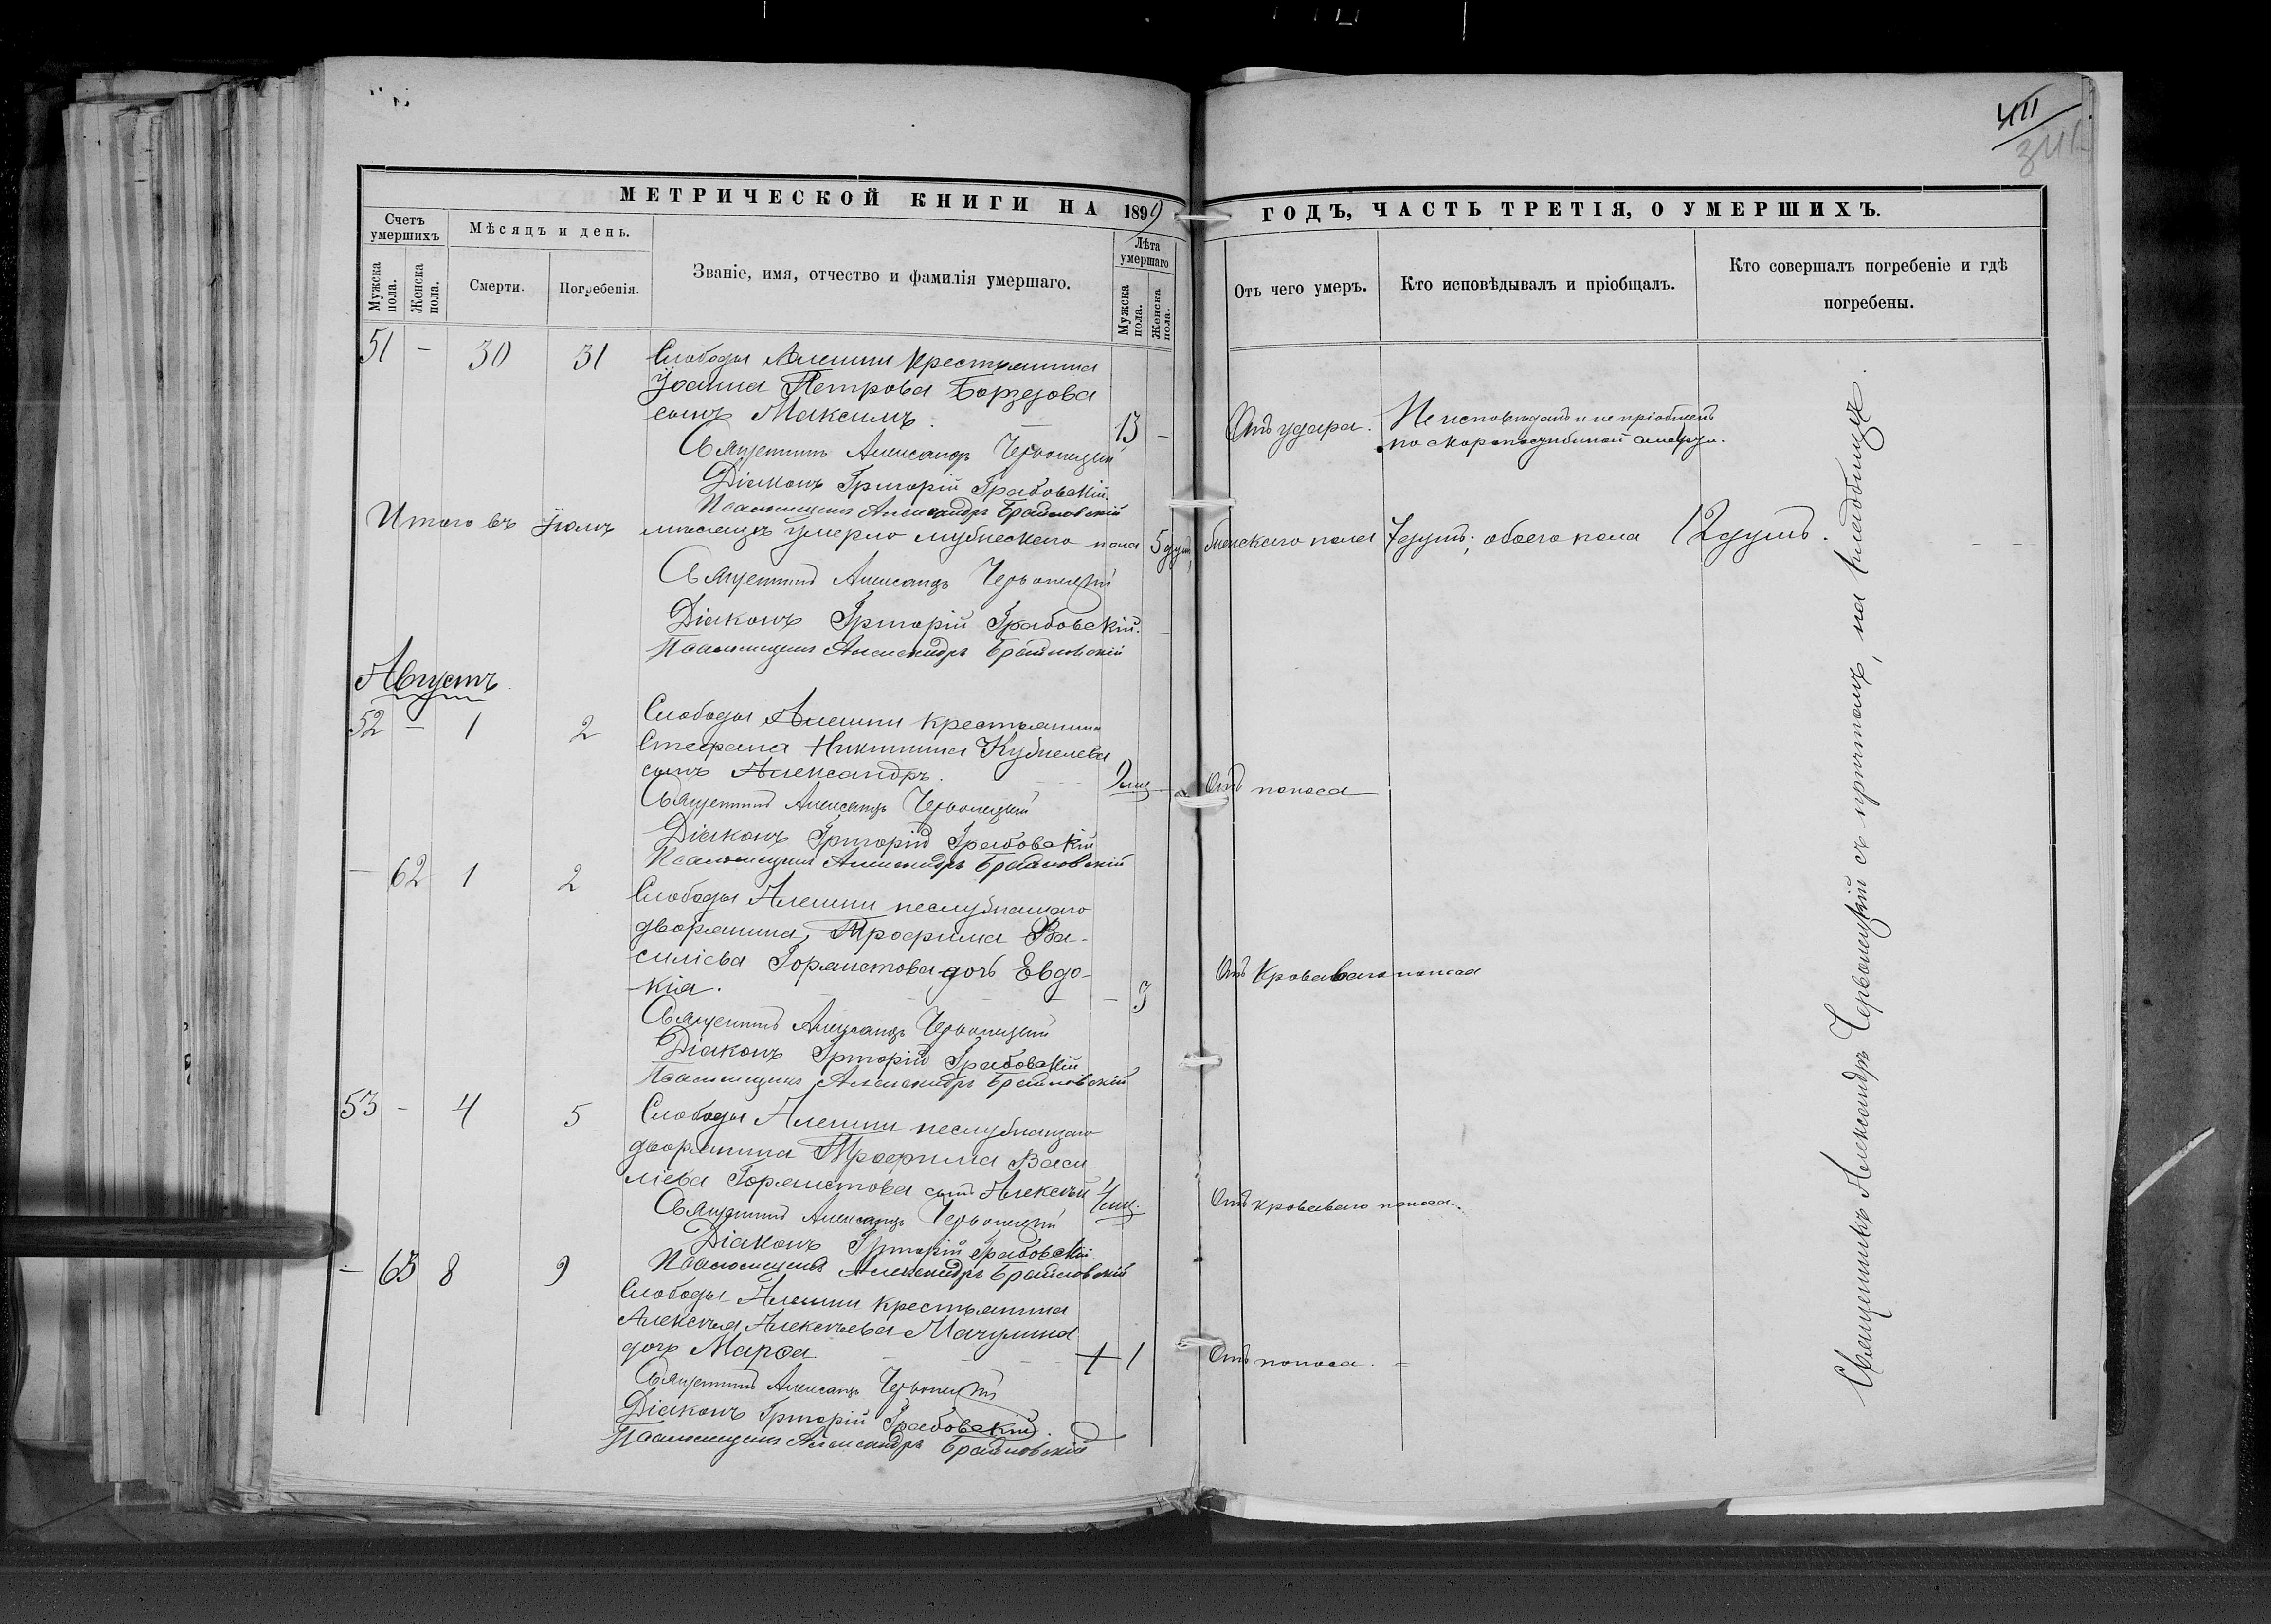 411
341
МЕТРИЧЕСКОЙ КНИГИ НА 1899 ГОДЪ, ЧАСТЬ ТРЕТІЯ, О УМЕРШИХЪ.
Счетъ умершихъ
Мужска пола.
Женска пола.
Мѣсяцъ и день.
Смерти.
Погребенія.
Званіе, имя, отчество и фамилія умершаго.
Лѣта умершаго
Мужска пола.
Женска пола.
Отъ чего умеръ.
Кто исповѣдывалъ и пріобщалъ.
Кто совершалъ погребеніе и гдѣ погребены.
51 - 30 31 Слободы Алешни крестьянина
Іоанна Петрова Борзова
сынъ Максимъ. 13 - Отъ удара. Не исповѣданъ и не пріобщенъ
по скоропостижной смерти.
Священникъ Александръ Червонецкій
Діаконъ Григорій Грабовскій.
Псаломщикъ Александръ Браиловскій
Итого въ Іюлѣ мѣсяцѣ умерло мужескаго пола 5 душъ, женскаго пола 7 душъ; обоего пола 12 душъ.
Священникъ Александръ Червонецкій
Діаконъ Григорій Грабовскій.
Псаломщикъ Александръ Браиловскій
Августъ
52 - 1 2 Слободы Алешни крестьянина
Стефана Никитина Кубнелева
сынъ Александръ. 9 мѣс. - Отъ поноса
Священникъ Александръ Червонецкій
Діаконъ Григорій Грабовскій
Псаломщикъ Александръ Браиловскій
- 62 1 2 Слободы Алешни неслужащаго
дворянина, Трофима Ва-
силіева Горяистова дочь Евдо-
кія. - 3 Отъ кроваваго поноса
Священникъ Александръ Червонецкій
Діаконъ Григорій Грабовскій
Псаломщикъ Александръ Браиловскій
53 - 4 5 Слободы Алешни неслужащаго
дворянина Трофима Васи-
ліева Горяистова сынъ Алексѣй 4 мѣс. Отъ кроваваго поноса.
Священникъ Александръ Червонецкій
Діаконъ Григорій Грабовскій
Псаломщикъ Александръ Браиловскій
- 63 8 9 Слободы Алешни крестьянина
Алексѣя Алексѣева Мачулина
дочь Марѳа 1 Отъ поноса.
Священникъ Александръ Червонецкій
Діаконъ Григорій Грабовскій.
Псаломщикъ Александръ Браиловскій
Священникъ Александръ Червонецкій съ причтомъ, на кладбищѣ.